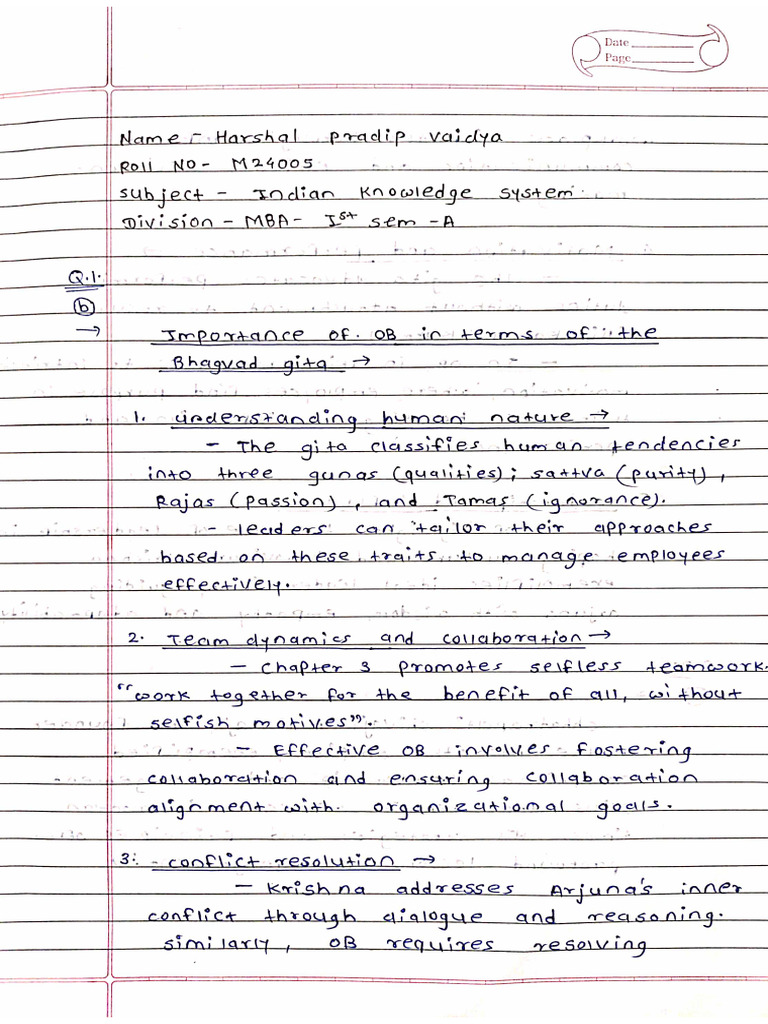 Date
Page
Name - Harshal Pradip Vaidya
Roll No - M24005
Subject - Indian Knowledge System
Division - MBA - Ist sem - A
Q.1.
b
→ Importance of OB in terms of the
Bhagvad gita →
1. Understanding human nature →
- The gita classifies human tendencies
into three gunas (qualities); sattva (purity),
Rajas (passion), and Tamas (ignorance).
- leaders can tailor their approaches
based on these traits to manage employees
effectively.
2. Team dynamics and collaboration →
- Chapter 3 promotes selfless teamwork.
"work together for the benefit of all, without
selfish motives".
- Effective OB involves fostering
collaboration and ensuring collaboration
alignment with organizational goals.
3. conflict resolution →
- Krishna addresses Arjuna's inner
conflict through dialogue and reasoning.
similarly, OB requires resolving